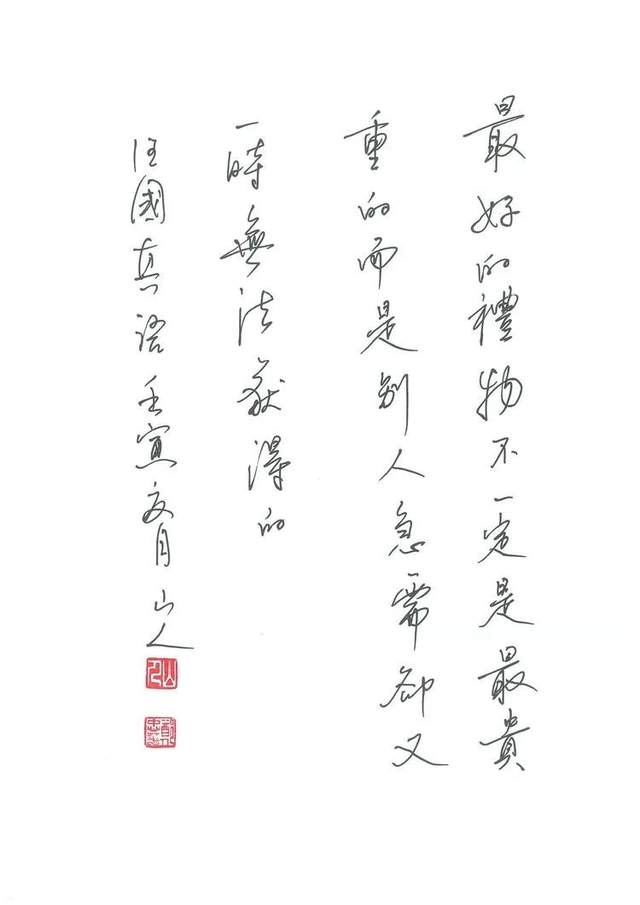 最好的禮物不一定是最貴
重的而是别人急需卻又
一時無法获得的
汪國真語壬寅月山人
山人